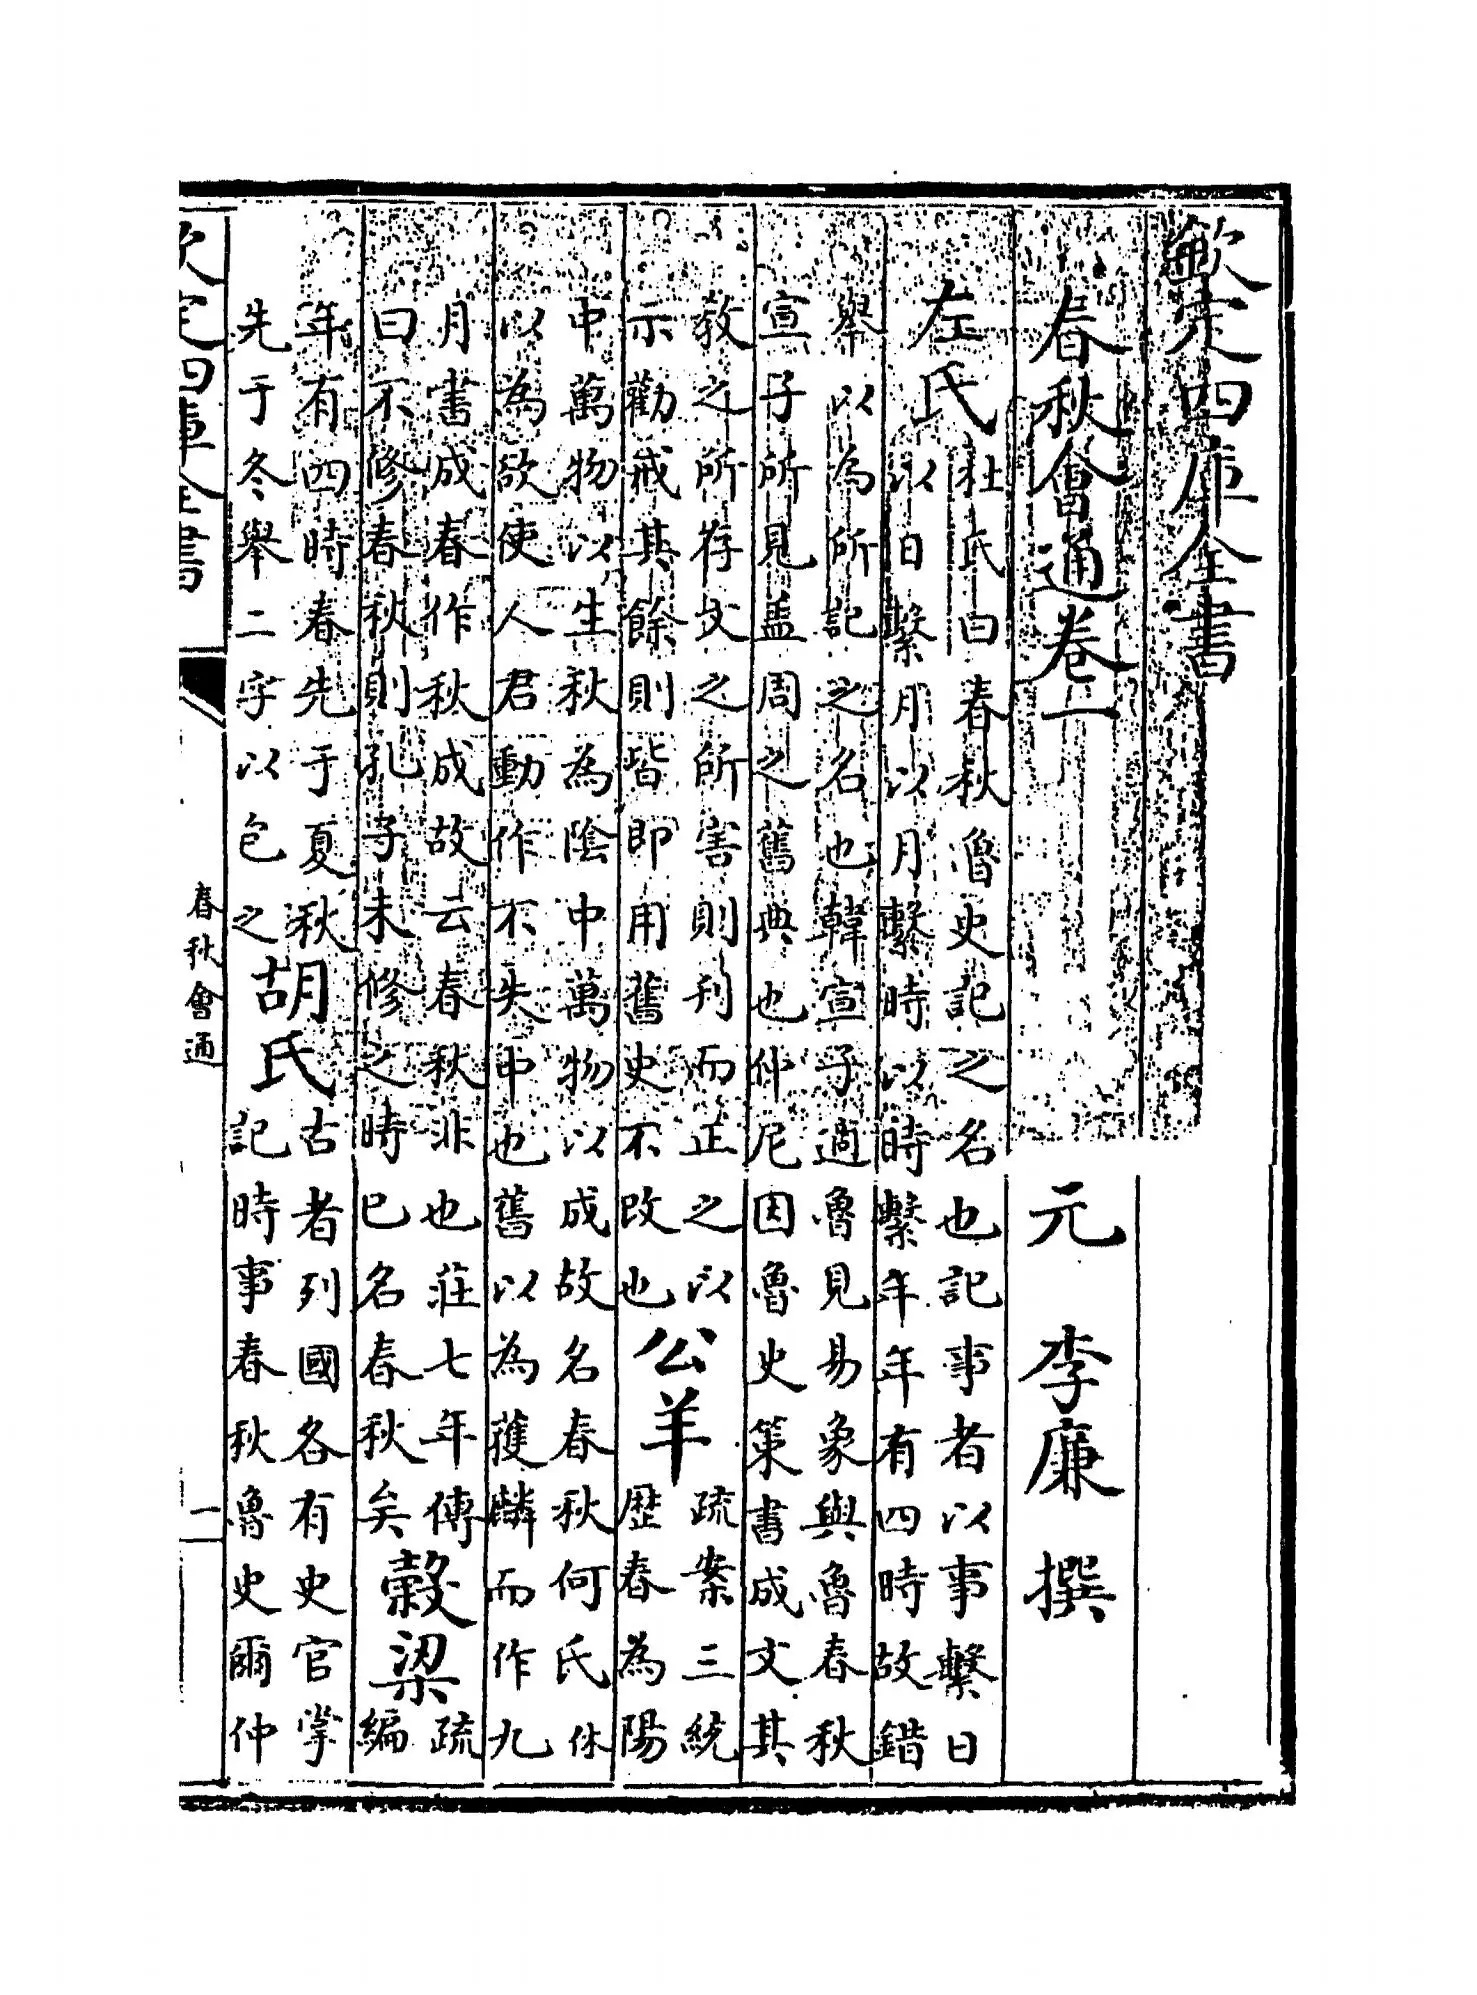 欽定四庫全書
春秋會通卷一
元 李廉 撰
左氏
杜氏曰春秋魯史記之名也記事者以事繫日
以日繫月以月繫時以時繫年年有四時故錯
舉以為所記之名也韓宣子適魯見易象與魯春秋
宣子所見盖周之舊典也仲尼因魯史策書成文其
教之所存文之所害則刋而正之以
示勸戒其餘則皆即用舊史不改也
公羊
疏案三統
歴春為陽
中萬物以生秋為陰中萬物以成故名春秋何氏休
以為欲使人君動作不失中也舊以為獲麟而作九
月書成春作秋成故云春秋非也莊七年傳
曰不修春秋則孔子未修之時已名春秋矣
穀梁
疏
編
年有四時春先于夏秋
先于冬舉二字以包之
胡氏
古者列國各有史官掌
記時事春秋魯史爾仲
欽定四庫全書
春秋會通
一